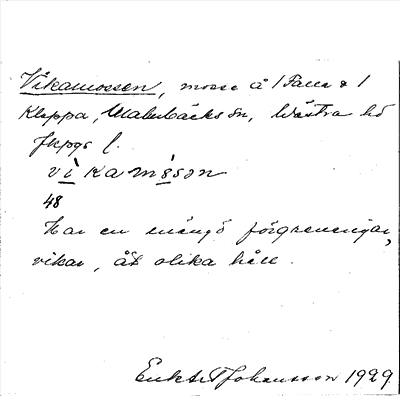 Vikamossen, mosse å 1 Falla & 1
Kleppa, Malmbäcks sn, Västra hd
Jkpgs l.
vìkamåsən
48
Har en mängd förgreningar,
vikar, åt olika håll.
Johansson 1929.